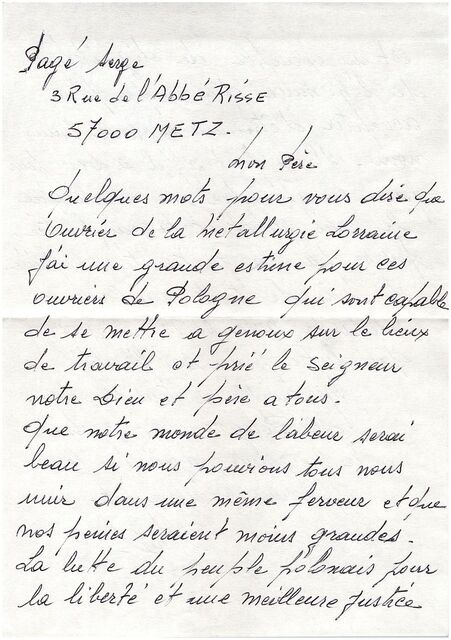 Pagé Serge
3 Rue de l'Abbé Risse
57000 METZ.
Mon Père
Quelques mots pour vous dire que
Ouvrier de la Métallurgie Lorraine
J'ai une grande estime pour ces
ouvriers de Pologne qui sont capable
de se mettre a genoux sur le lieux
de travail et prié le Seigneur
notre Dieu et père a tous.
Que notre monde de labeur serai
beau si nous pouvions tous nous
unir dans une même ferveur et que
nos peines seraient moins grandes.
La lutte du peuple polonais pour
la liberté et une meilleure justice